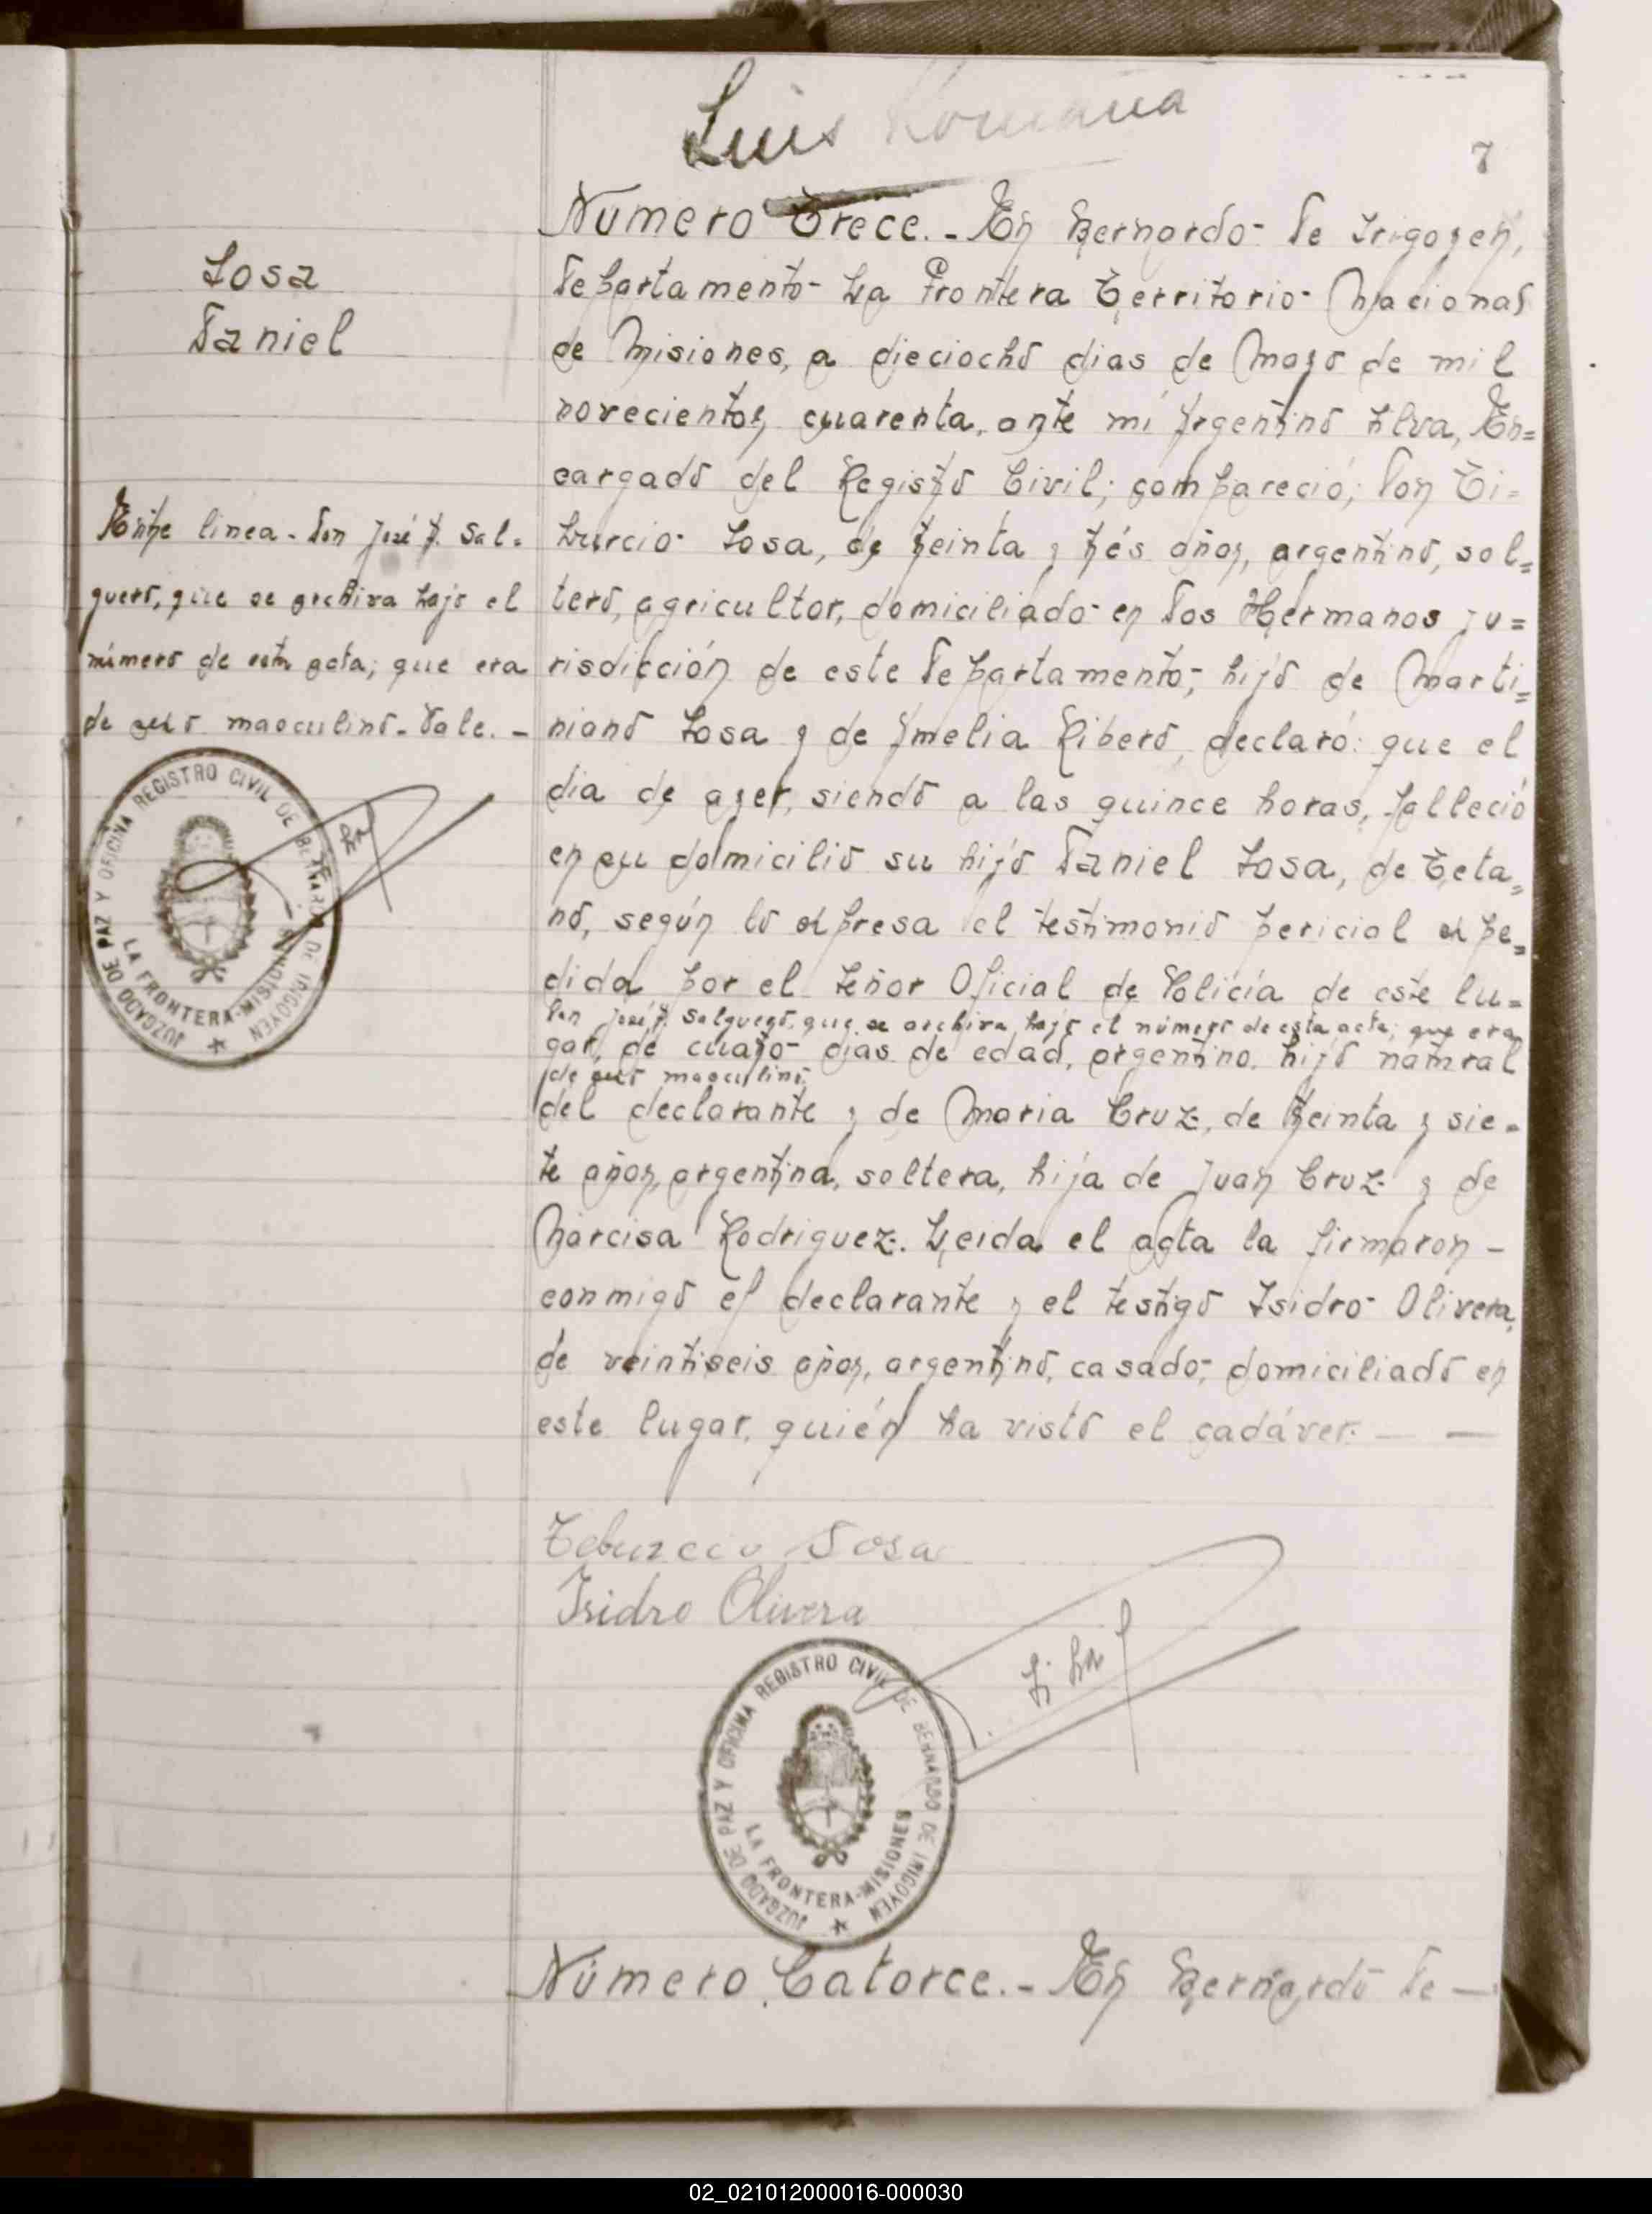 Luis Romaña
7
Número Trece.- En Bernardo- De Irigoyen,
Departamento- La Frontera Territorio- Nacional
de Misiones, a dieciocho dias de Mayo de mil
novecientos cuarenta, ante mí Argentino Silva, En=
cargado del Registro Civil; compareció; Don Ti=
burcio- Sosa, de treinta y trés años, argentino, sol=
tero, agricultor, domiciliado- en Dos Hermanos ju=
risdicción de este Departamento; hijo de Marti=
niano Sosa y de Amelia Ribero, declaró: que el
dia de ayer, siendo a las quince horas, falleció
en su domicilio su hijo Daniel Sosa, de Téta=
no, según lo expresa el testimonio pericial expe=
dida por el Señor Oficial de Policía de este lu=
Don José A. Salguero, que se archiva bajo el número de esta acta; que era
gar, de cuatro- dias de edad, argentino, hijo natural
de sexo masculino,
del declarante y de Maria Cruz, de treinta y sie=
te años, argentina, soltera, hija de Juan Cruz y de
Narcisa Rodriguez. Leida el acta la firmaron -
conmigo el declarante y el testigo Isidro- Olivera,
de veintiseis años, argentino, casado; domiciliado en
este lugar, quién ha visto el cadáver. — —
Sosa
Daniel
Entre linea - Don José A. Sal=
guero, que se archiva bajo el
número de esta acta; que era
de sexo masculino - Vale. -
JUZGADO DE PAZ Y OFICINA REGISTRO CIVIL DE BERNARDO DE IRIGOYEN
LA FRONTERA-MISIONES
Teburcio Sosa
Isidro Olivera
JUZGADO DE PAZ Y OFICINA REGISTRO CIVIL DE BERNARDO DE IRIGOYEN
LA FRONTERA-MISIONES
Número Catorce.- En Bernardo De —
02_021012000016-000030